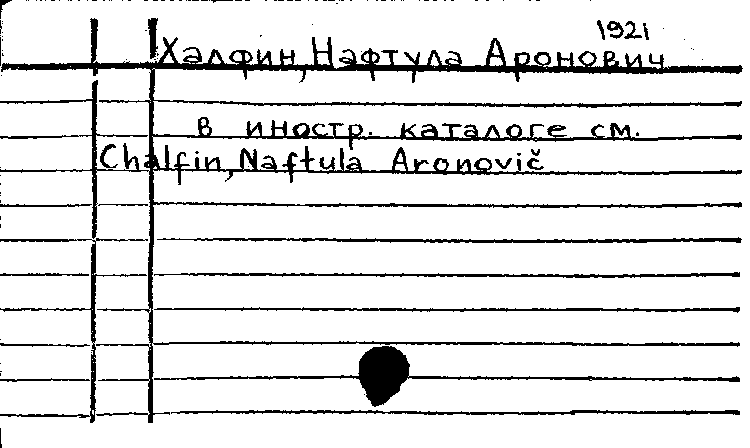 1921
Халфин, Нафтула Аронович
в иностр. каталоге см.
Chalfin, Naftula Aronovič